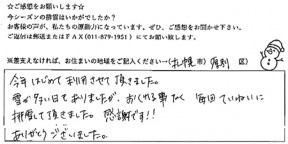 ☆ご感想をお願いします☆
今シーズンの排雪はいかがでしたか？
お客様の声が、私たちの原動力になっています。ぜひ、ご感想をお聞かせ下さい。
ご返信は郵送またはFAX(011-879-1951)にてお願い致します。
※差支えなければ、お住まいの地域をご記入ください→(札幌 市)(厚別 区)
今年はじめて利用させて頂きました。
雪が多い日もありましたが、おくれる事なく 毎回ていねいに
排雪して頂きました。 感謝です!!
ありがとうございました。